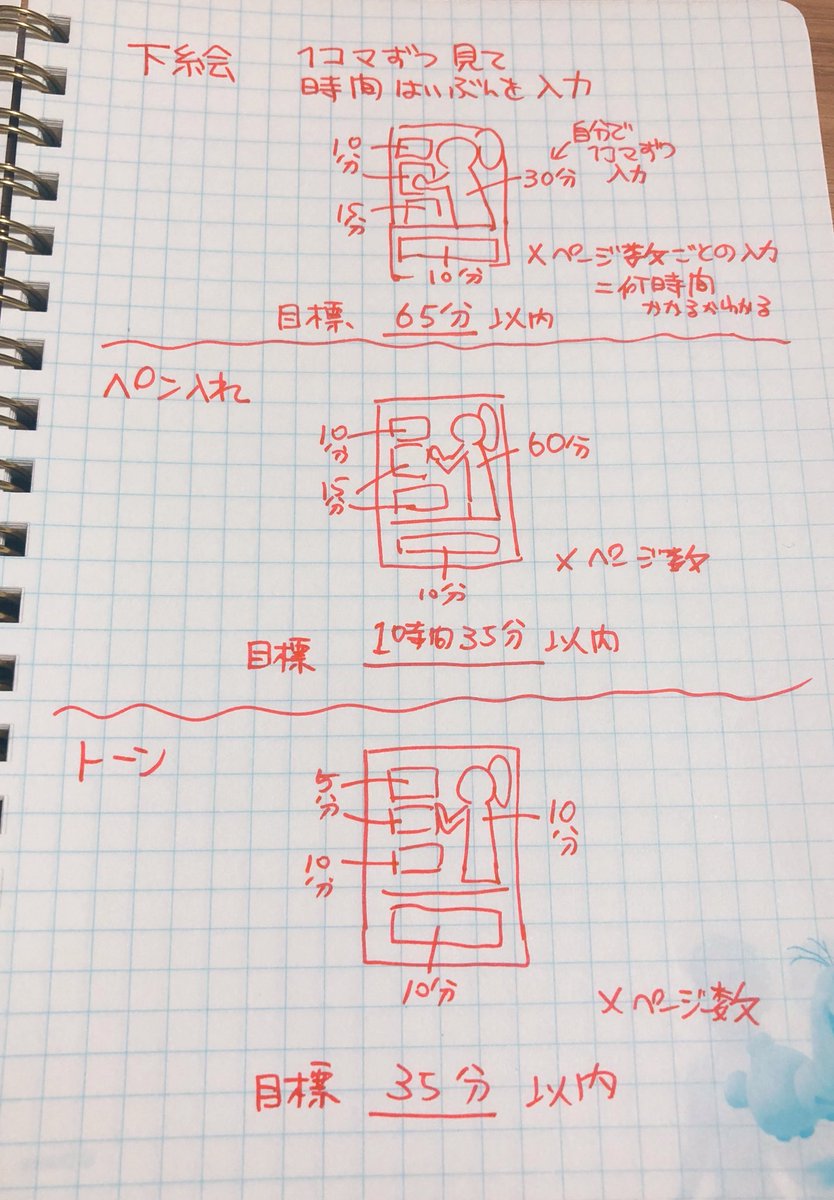 下絵 1コマずつ見て
時間はいぶんを入力
10分
15分
30分
自分で
1コマずつ
入力
10分
×ページ数ごとの入力
=何時間
かかるかわかる
目標、65分以内
ペン入れ
10分
15分
60分
10分
×ページ数
目標 1時間35分以内
トーン
5分
10分
10分
10分
×ページ数
目標 35分以内